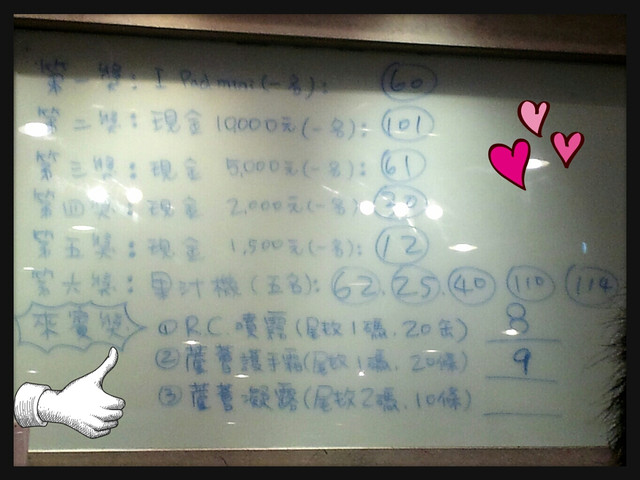 第一獎：I Pad mini (一名)： 60
第二獎：現金 10,000元(一名)： 101
第三獎：現金 5,000元(一名)： 61
第四獎：現金 2,000元(一名)
第五獎：現金 1,500元(一名)： 12
第六獎：果汁機 (五名)： 62. 25. 40 110 114
來賓獎
① R.C. 噴霧 (尾數1碼. 20缶) 8
② 蘆薈護手霜(尾數1碼. 20條) 9
③ 蘆薈凝露(尾數2碼. 10條)